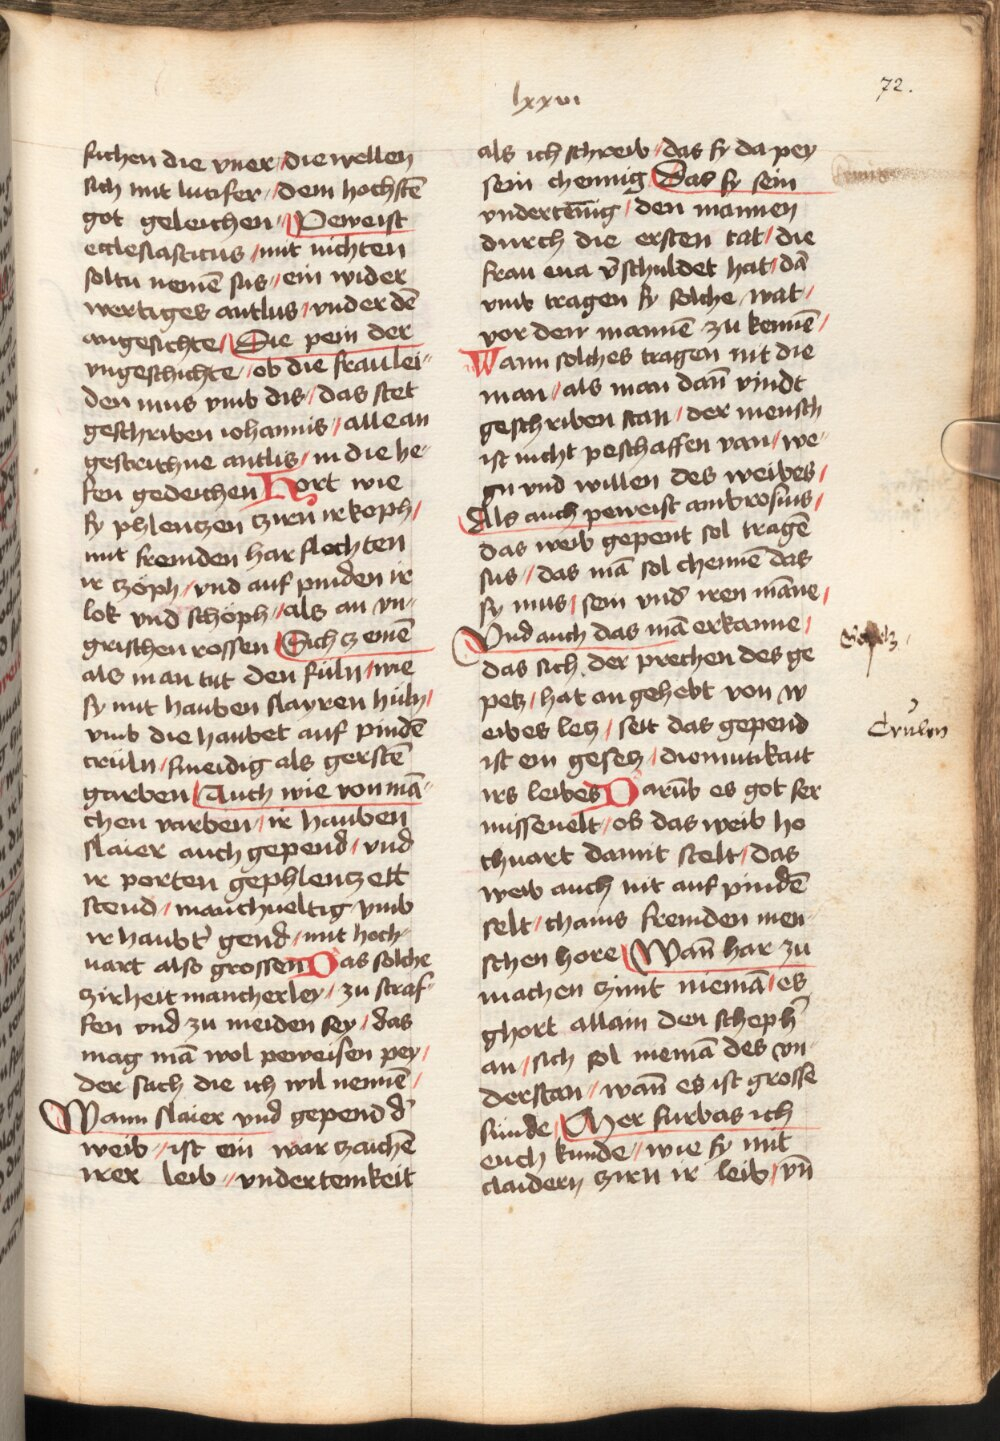 lxxvi
72.
suchen die vner / die wellen
sich mit lucifer / dem hochstē
got geleichen / Peweist
ecclesiasticus / mit nichten
soltu nemē sus / ein wider
wertiges antlus / vnder dē
angesichte / Die pein der
vngeschichte / ob die frau lei-
den mus vmb dis / das stet
geschriben iohannis / alle an
gestrichne antlis / in die he-
fen gedeichen Hort wie
sy phlentzen zirn ir koph /
mit fremden har flechten
ir zöph / vnd auf pinden ir
lok vnd schöph / als an vn-
grischen rossen Sich zenē
als man tut den füln / wie
sy mit hauben slayren hüln /
vmb die haubet auf pindē
trüln / sneidig als gerstē
garben / Auch wie von mā-
chen varben / ir hauben
slaier auch gepend / vnd
ir porten gephlentzelt
stend / manchueltig vmb
ir haubt gend / mit hoch-
uart also grossen Das solche
zirheit mancherley / zu straf-
fen vnd zu meiden sey / das
mag mā wol peweisen pey /
der sach die ich wil nennē /
Wann slaier vnd gepend d'
weib / ist ein war zaichē
irer leib / vndertenikeit
als ich schreib / das sy da pey
sein chennig Das sy sein
vndertēnig / den mannen
durch die ersten tat / die
frau eua v̄schuldet hat / dā
vmb tragen sy solche wat /
vor den mannē zu kennē /
Wann solches tragen nit die
man / als man dan̄ vindt
geschriben stan / der mensch
ist nicht peschaffen van / we-
gn vnd willen des weibes /
Als auch peweist ambrosius /
das weib gepent sol tragē
sus / das mā sol chennē das
sy mus / sein vnd' iren māne /
Vnd auch das mā erkanne /
das sich der prechen des ge
petz / hat an gehebt von w
eibes letz / seit das gepend
ist ein gesetz / diemutikait
irs leibes Darūb es got ser
misseuelt / ob das weib ho
chuart damit stelt / das
weib auch nit auf pindē
selt / chains fremden men-
schen hore / Wan̄ har zu
machen zimt niemā / es
ghort allain den scheph'
an / sich sol niemā des vn-
derstan / wan̄ es ist grosse
sünde / Mer furbas ich
euch kunde / wie sy mit
claidern zirn ir leib / vn̄
Trüln